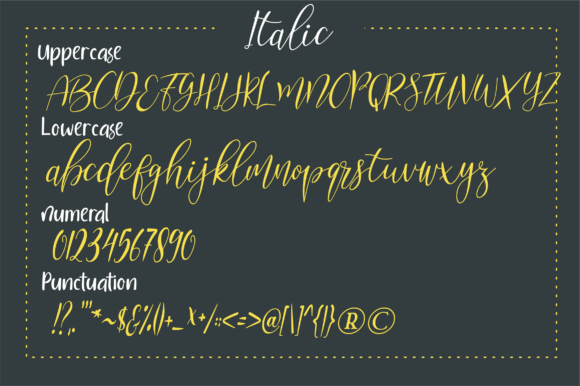 Italic
Uppercase
ABCDEFGHIJKLMNOPQRSTUVWXYZ
Lowercase
abcdefghijklmnopqrstuvwxyz
Numeral
01234567890
Punctuation
!?,."'*~$&%()+_×+/:;<=>@[\]^{|}®©